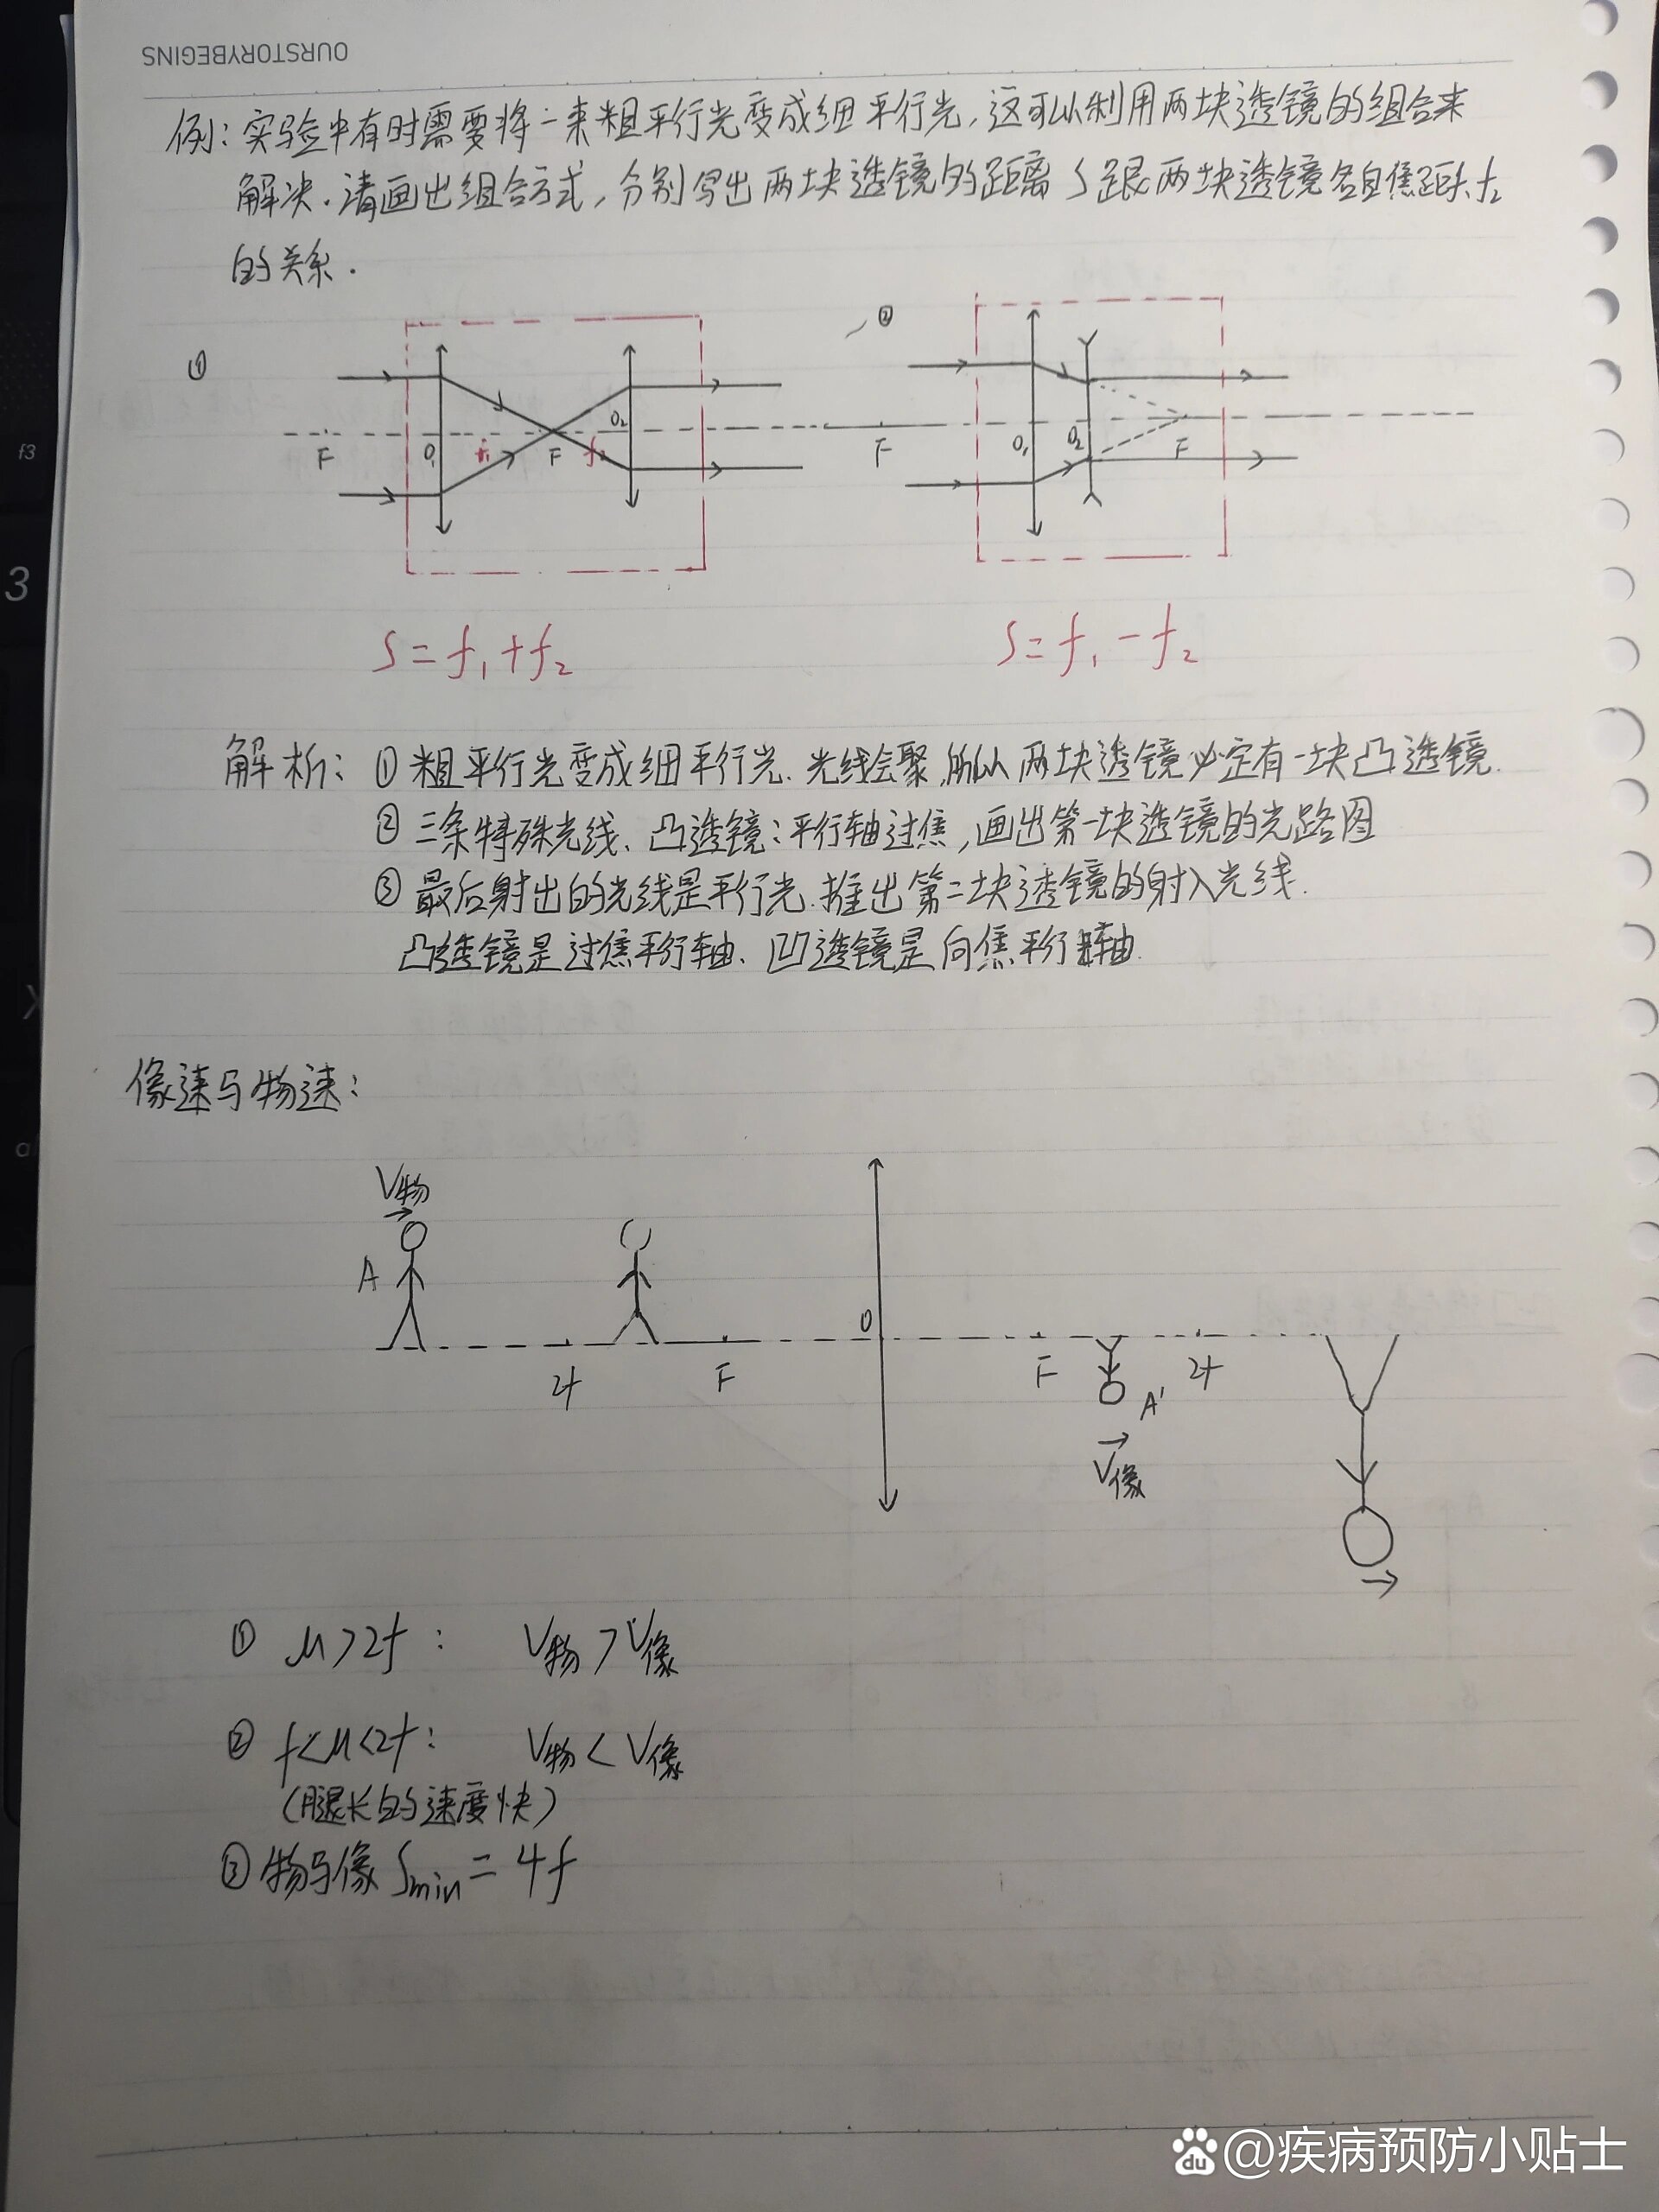 OURSTORYBEGINS
例：实验中有时需要将一束粗平行光变成细平行光，这可以利用两块透镜的组合来
解决．请画出组合方式，分别写出两块透镜的距离S跟两块透镜各自焦距f₁、f₂
的关系．
① ②
F O₁ f₁ F f₂ O₂ F O₁ O₂ F
S=f₁+f₂ S=f₁-f₂
解析：①粗平行光变成细平行光．光线会聚，所以两块透镜必定有一块凸透镜．
②三条特殊光线、凸透镜：平行轴过焦，画出第一块透镜的光路图
③最后射出的光线是平行光．推出第二块透镜的射入光线．
凸透镜是过焦平行轴、凹透镜是向焦平行轴．
像速与物速：
V物
A
O
2f F F 2f
A'
V像
① u>2f： V物>V像
② f<u<2f： V物<V像
（腿长的速度快）
③物与像Smin=4f
f3
3
du @疾病预防小贴士